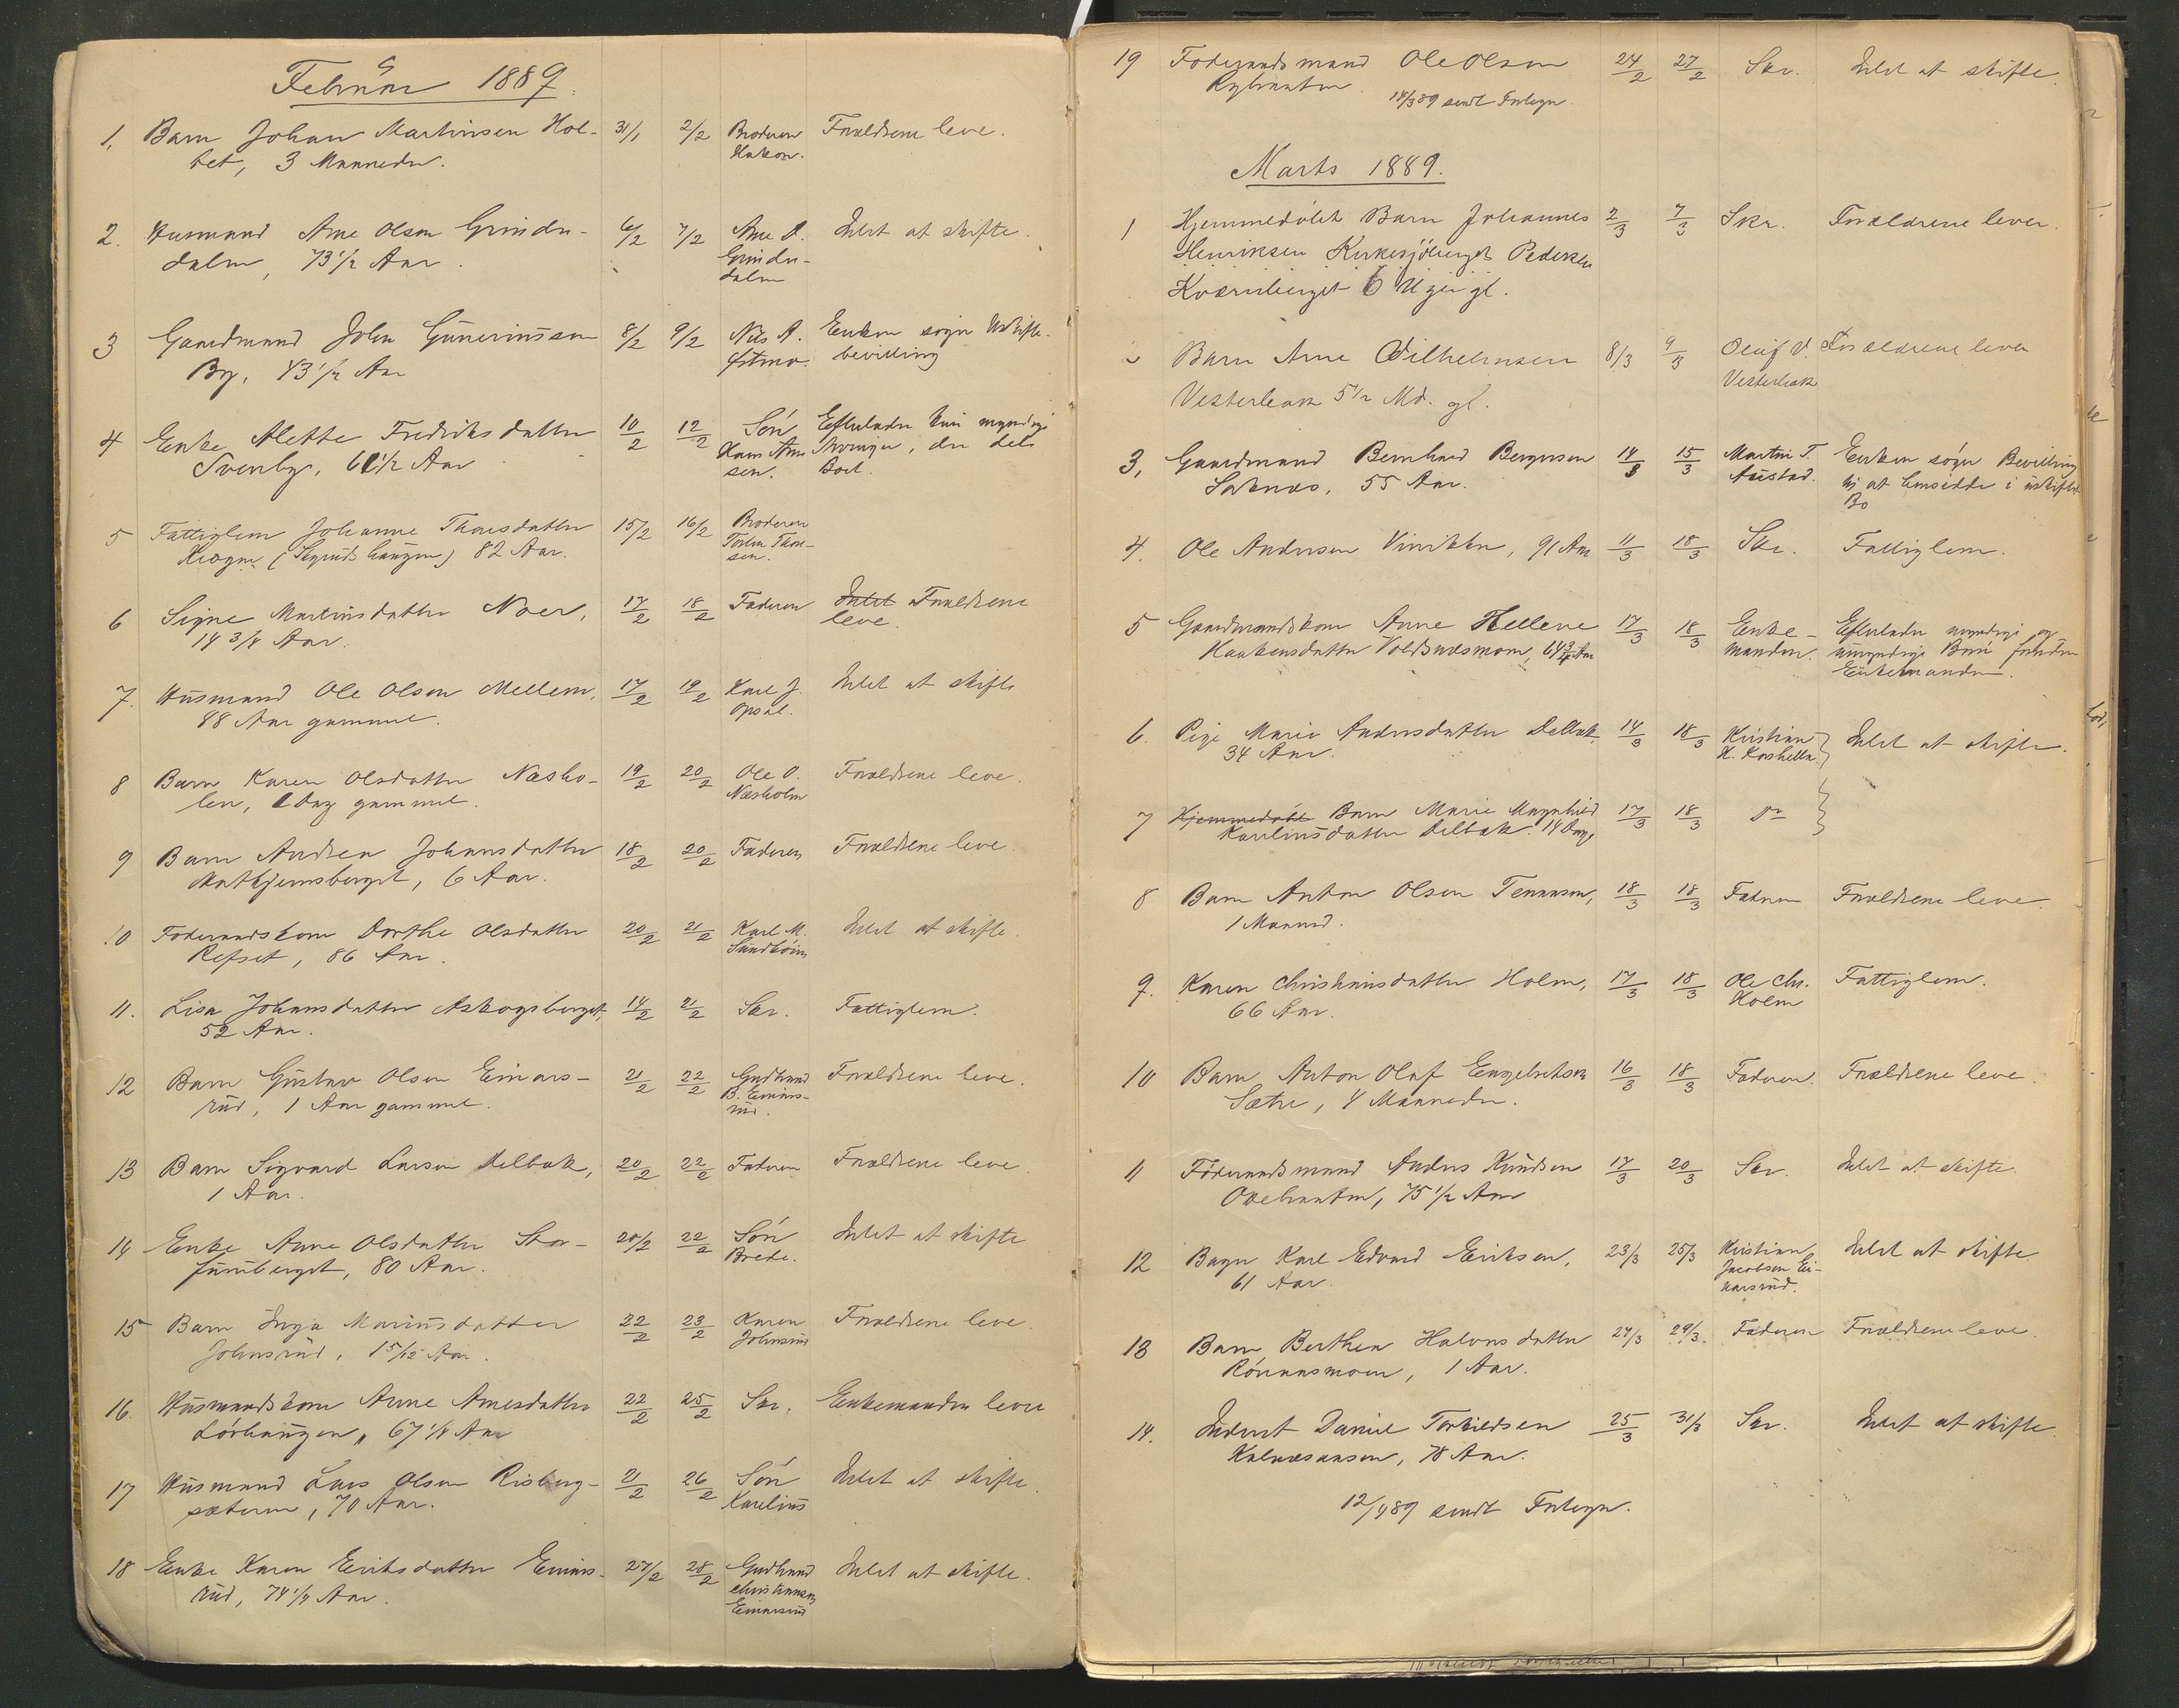 Februar 1889.
1. Barn Johan Martinsen Hol- 31/1 2/2 Broderen Forældrene leve.
tet, 3 Maaneder. Hakon.
2. Husmand Arne Olsen Grinder- 6/2 7/2 Arne A. Intet at skifte.
dalen, 73 1/2 Aar. Grinder-
dalen
3 Gaardmand John Guneriussen 8/2 9/2 Nils A. Enken søger Uskifte-
By, 43 1/2 Aar bevilling
4 Enke Alette Fredriksdatter 10/2 12/2 Søn Efterlader kun myndige
Svenby, 61 1/2 Aar Hans Arne- Arvinger, der dele
sen. Boet.
5 Fattiglem Johanne Thorsdatter 15/2 16/2 Broderen
(Skyrudshaugen) 82 Aar. Thor-
sen.
6 Signe Martinsdatter Noer, 17/2 18/2 Faderen Intet Forældrene
14 3/4 Aar. leve.
7. Husmand Ole Olsen Mellem, 17/2 19/2 Karl J. Intet at skifte
88 Aar gammel. Opsal.
8 Barn Karen Olsdatter Næsho- 19/2 20/2 Ole O. Forældrene leve.
len, 1 Dag gammel. Næsholen
9 Barn Andrea Johansdatter 18/2 20/2 Faderen Forældrene leve.
Mathjernsberget, 6 Aar.
10 Føderaadskone Dorthe Olsdatter 20/2 21/2 Karl M. Intet at skifte.
Refset, 86 Aar. Sundbøien
11. Lisa Johansdatter Askogsberget, 14/2 21/2 Skr. Fattiglem.
52 Aar.
12 Barn Gustav Olsen Einars- 21/2 22/2 Gudbrand Forældrene leve.
rud, 1 Aar gammel. B. Einars-
rud.
13 Barn Sigvard Larsen Delbæk, 20/2 22/2 Faderen Forældrene leve.
1 Aar.
14 Enke Anne Olsdatter Stor- 20/2 22/2 Søn Intet at skifte
furuberget, 80 Aar. Brede.
15 Barn Inga Mariusdatter 22/2 23/2 Karen Forældrene leve.
Johnsrud, 1 5/12 Aar. Johnsrud
16. Husmandskone Anne Arnesdatter 22/2 25/2 Skr. Enkemanden lever
Lørhaugen, 67 1/4 Aar
17 Husmand Lars Olsen Risberg- 21/2 26/2 Søn Intet at skifte.
sæteren, 70 Aar. Karelius
18 Enke Karen Eriksdatter Einars- 27/2 28/2 Gudbrand Intet at skifte.
rud, 74 1/4 Aar. Christiansen
Einarsrud
19 Føderaadsmand Ole Olsen 24/2 27/2 Skr. Intet at skifte.
Rybraaten. 14/3 89 sendt Fortegn.
Marts 1889.
1 Hjemmedøbt Barn Johannes 2/3 7/3 Skr. Forældrene lever.
Henriksen Kirkesjøberget Pedersen
Kværnberget 6 Uger gl.
2 Barn Arne Vilhelmsen 8/3 9/3 Oluf V. Forældrene lever
Vesterbæk 5 1/2 Md. gl. Vesterbæk
3, Gaardmand Bernhard Bergersen 14/3 15/3 Martin T. Enken søger Bevilling
Saknæs, 55 Aar. Austad. til at hensidde i uskiftet
Bo
4. Ole Andersen Viniken, 91 Aar 11/3 18/3 Skr. Fattiglem.
5 Gaardmandskone Anne Hellene 17/3 18/3 Enke- Efterlader myndige og
Haakensdatter Voldsnæsmoen, 64 3/4 Aar manden. umyndige Børn foruden
Enkemanden.
6. Pige Marie Andersdatter Delbæk, 14/3 18/3 Kristian Intet at skifte.
34 Aar. H.
7 Hjemmedøbt Barn Marie Magnhild 17/3 18/3 Do
Kareliusdatter Delbæk. 14 Dage
8 Barn Anton Olsen Tenaasen, 18/3 18/3 Faderen Forældrene leve.
1 Maaned.
9. Karen Christiansdatter Holm, 17/3 18/3 Ole Chr. Fattiglem.
66 Aar. Holm
10 Barn Anton Olaf Engelbretsen 16/3 18/3 Faderen. Forældrene leve.
Sætre, 4 Maaneder.
11 Føderaadsmand Anders Knudsen 17/3 20/3 Skr. Intet at skifte.
Oxebraaten, 75 1/2 Aar
12 Bager Karl Edvard Eriksen, 23/3 25/3 Kristian Intet at skifte.
61 Aar. Jacobsen Ei-
narsrud.
13 Barn Berthea Halvorsdatter 27/3 29/3. Faderen Forældrene leve.
Rønaasmoen, 1 Aar.
14. Inderst Daniel Torkildsen 25/3 31/3 Skr. Intet at skifte.
Kalnæsaasen, 78 Aar.
12/4 89 sendt Fortegn.